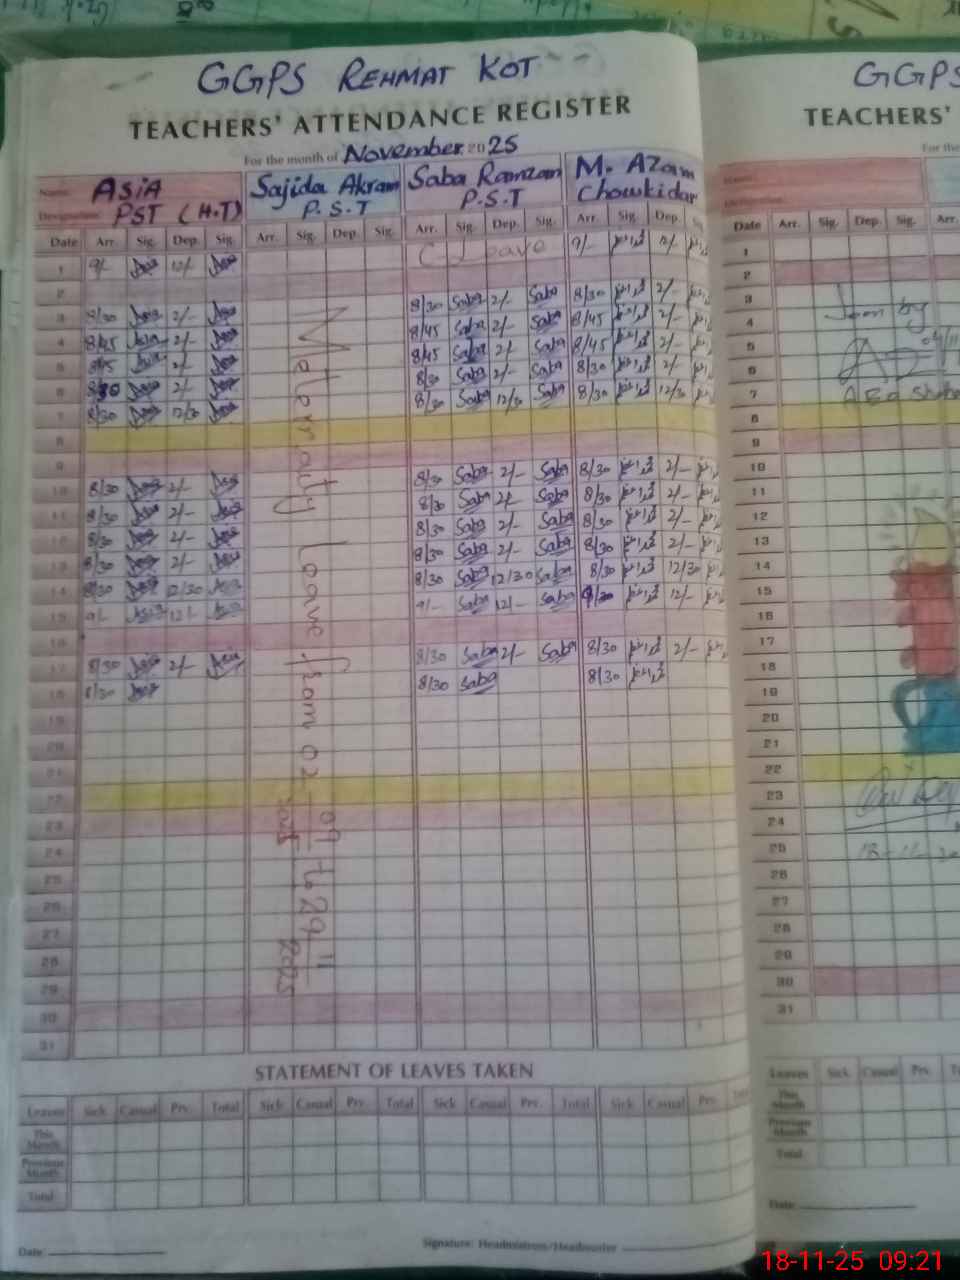 GGPS REHMAT KOT
TEACHERS' ATTENDANCE REGISTER
For the month of November 2025
Name: ASiA Sajida Akram Saba Ramzan M. Azam
Designation: PST (H.T) P.S.T P.S.T Chowkidar
Date Arr. Sig. Dep. Sig. Arr. Sig. Dep. Sig. Arr. Sig. Dep. Sig. Arr. Sig. Dep. Sig.
1 9/- Asia 12/- Asia C-Leave 9/- 12/-
2
3 8/30 Asia 2/- Asia 8/30 Saba 2/- Saba 8/30 2/-
4 8/45 Asia 2/- Asia 8/45 Saba 2/- Saba 8/45 2/-
5 8/45 Asia 2/- Asia 8/45 Saba 2/- Saba 8/45 2/-
6 8/30 Asia 2/- Asia 8/30 Saba 2/- Saba 8/30 2/-
7 8/30 Asia 12/30 Asia 8/30 Saba 12/30 Saba 8/30 12/30
8
9
10 8/30 Asia 2/- Asia 8/30 Saba 2/- Saba 8/30 2/-
11 8/30 Asia 2/- Asia 8/30 Saba 2/- Saba 8/30 2/-
12 8/30 Asia 2/- Asia 8/30 Saba 2/- Saba 8/30 2/-
13 8/30 Asia 2/- Asia 8/30 Saba 2/- Saba 8/30 2/-
14 8/30 Asia 12/30 Asia 8/30 Saba 12/30 Saba 8/30 12/30
15 9/- Asia 12/- Asia 9/- Saba 12/- Saba 12/-
16
17 8/30 Asia 2/- Asia 8/30 Saba 2/- Saba 8/30 2/-
18 8/30 Asia 8/30 Saba 8/30
19
20
21
22
23
24
25
26
27
28
29
30
31
Meternity Leave from 02-09-2025 to 29-11-2025
STATEMENT OF LEAVES TAKEN
Leaves Sick Casual Prv. Total Sick Casual Prv. Total Sick Casual Prv. Total Sick Casual Prv. Total
This Month
Previous Month
Total
Date: Signature: Headmistress/Headmaster
GGPS
TEACHERS'
For the
Name:
Designation:
Date Arr. Sig. Dep. Sig. Arr.
1
2
3
4
5
6
7
8
9
10
11
12
13
14
15
16
17
18
19
20
21
22
23
24
25
26
27
28
29
30
31
Seen by
04/11
AEO
18-11-20
Leaves Sick Casual Prv.
This Month
Previous Month
Total
Date:
18-11-25 09:21